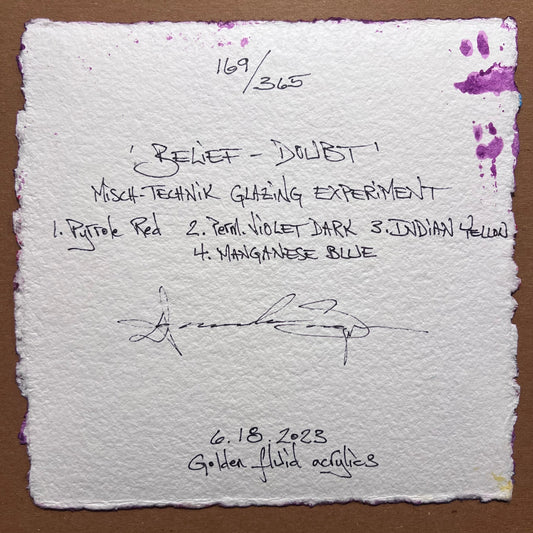 169/365
'BELIEF - DOUBT'
MISCH-TECHNIK GLAZING EXPERIMENT
1. Pyrrole Red 2. PERM. VIOLET DARK 3. INDIAN YELLOW
4. MANGANESE BLUE
6.18.2023
Golden fluid acrylics